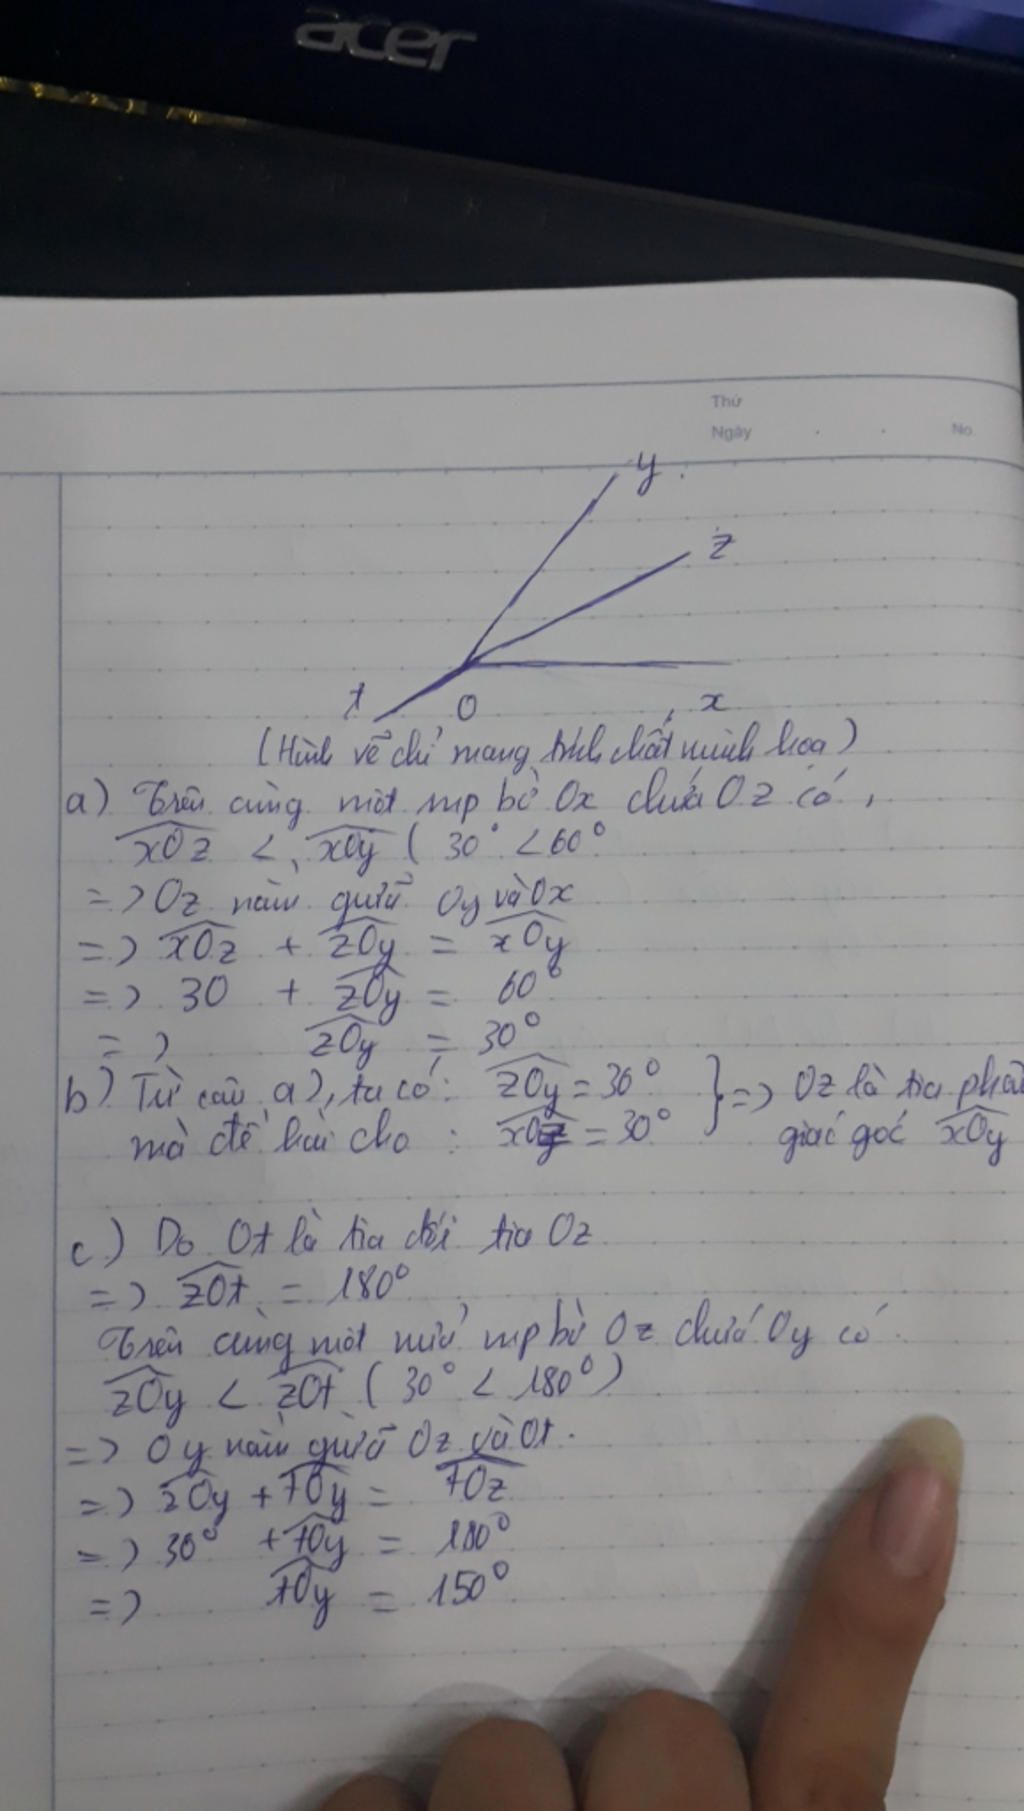 acer
Thứ
Ngày . . No.
y
z
t O x
(Hình vẽ chỉ mang tính chất minh họa)
a) Trên cùng một mp bờ Ox chứa Oz có,
xOz < xOy ( 30° < 60°
=> Oz nằm giữa Oy và Ox
=> xOz + zOy = xOy
=> 30 + zOy = 60°
=> zOy = 30°
b) Từ câu a), ta có: zOy = 30° } => Oz là tia phân
mà đề bài cho : xOz = 30° giác góc xOy
c) Do Ot là tia đối tia Oz
=> zOt = 180°
Trên cùng một nửa mp bờ Oz chứa Oy có
zOy < zOt ( 30° < 180°)
=> Oy nằm giữa Oz và Ot.
=> zOy + tOy = tOz
=> 30° + tOy = 180°
=> tOy = 150°